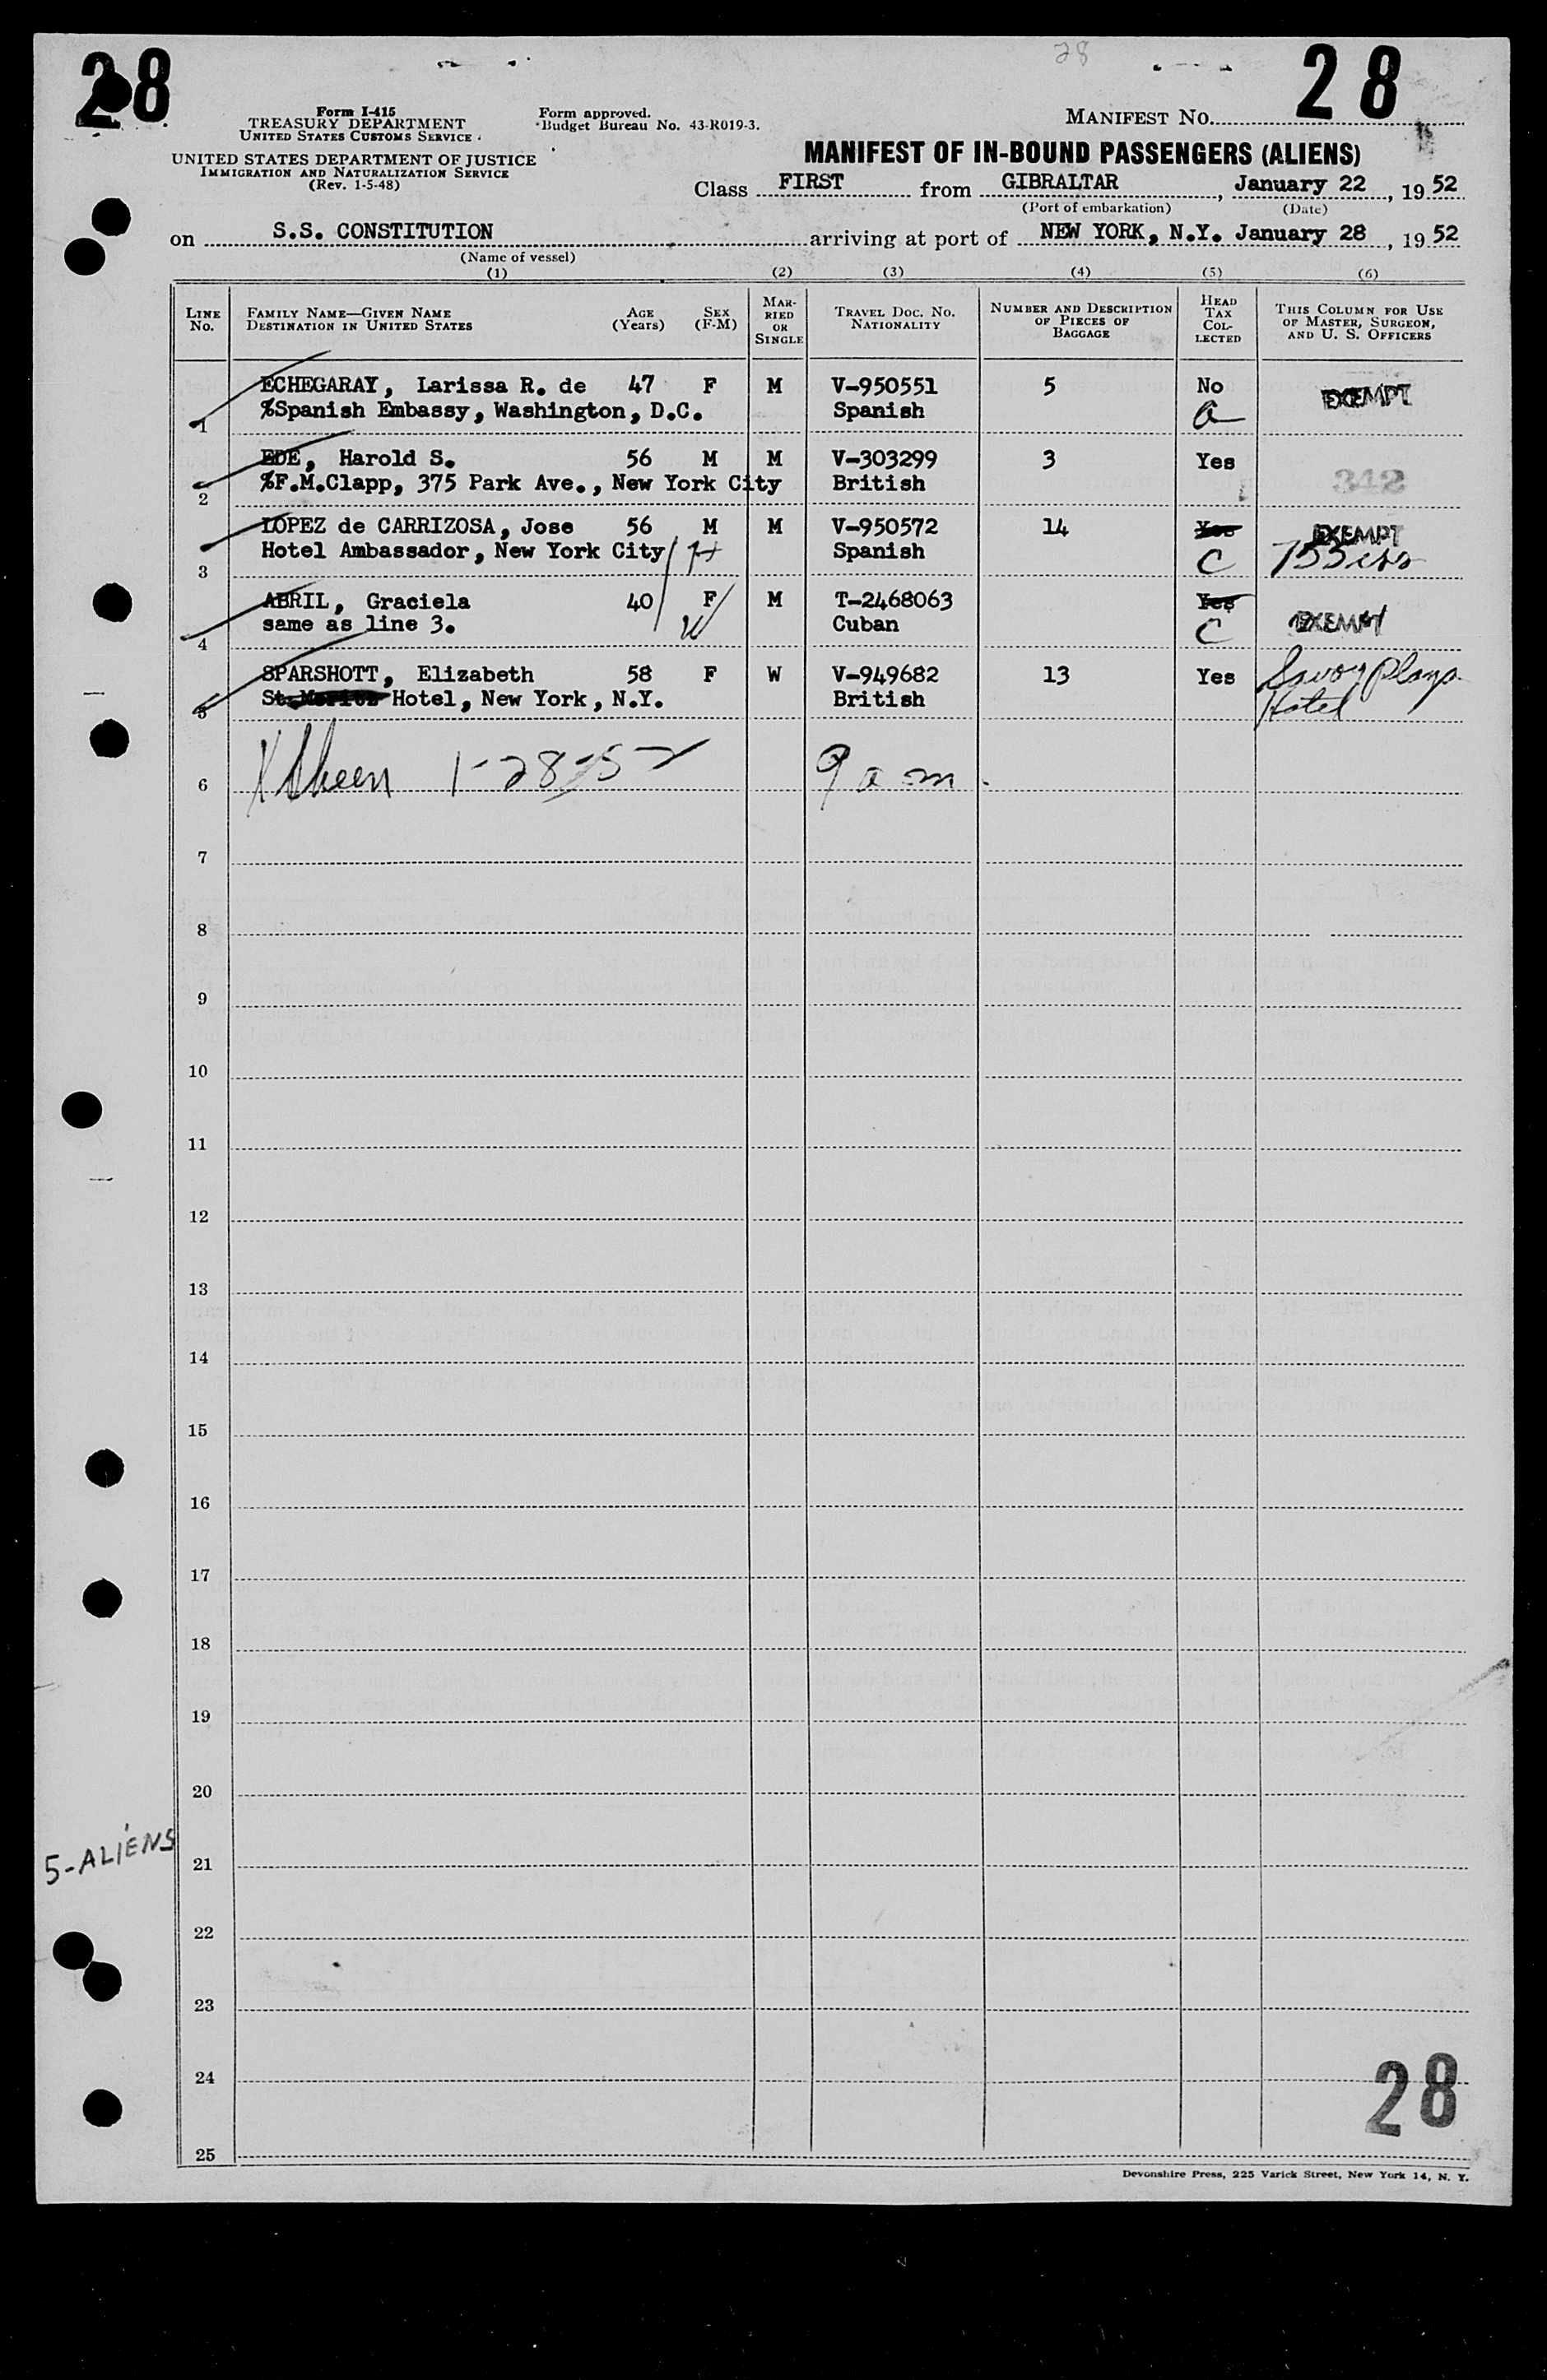 28
28
28
Form I-415
TREASURY DEPARTMENT
UNITED STATES CUSTOMS SERVICE
UNITED STATES DEPARTMENT OF JUSTICE
IMMIGRATION AND NATURALIZATION SERVICE
(Rev. 1-5-48)
Form approved.
Budget Bureau No. 43-R019-3.
MANIFEST NO.
MANIFEST OF IN-BOUND PASSENGERS (ALIENS)
Class FIRST from GIBRALTAR, January 22, 1952
(Port of embarkation) (Date)
on S.S. CONSTITUTION arriving at port of NEW YORK, N.Y. January 28, 1952
(Name of vessel)
(1) (2) (3) (4) (5) (6)
LINE No. FAMILY NAME—GIVEN NAME DESTINATION IN UNITED STATES AGE (Years) SEX (F-M) MARRIED OR SINGLE TRAVEL DOC. NO. NATIONALITY NUMBER AND DESCRIPTION OF PIECES OF BAGGAGE HEAD TAX COLLECTED THIS COLUMN FOR USE OF MASTER, SURGEON, AND U. S. OFFICERS
ECHEGARAY, Larissa R. de 47 F M V-950551 5 No EXEMPT
1 %Spanish Embassy, Washington, D.C. Spanish a
EDE, Harold S. 56 M M V-303299 3 Yes
2 %F.M.Clapp, 375 Park Ave., New York City British 342
LOPEZ de CARRIZOSA, Jose 56 M M V-950572 14 Yes EXEMPT
3 Hotel Ambassador, New York City H Spanish C
ABRIL, Graciela 40 F M T-2468063 Yes
4 same as line 3. W Cuban C EXEMPT
SPARSHOTT, Elizabeth 58 F W V-949682 13 Yes Savoy Plaza
5 St. Moritz Hotel, New York, N.Y. British Hotel
6 1-28-52 9 a m.
7
8
9
10
11
12
13
14
15
16
17
18
19
20
5-ALIENS
21
22
23
24
28
25
Devonshire Press, 225 Varick Street, New York 14, N. Y.